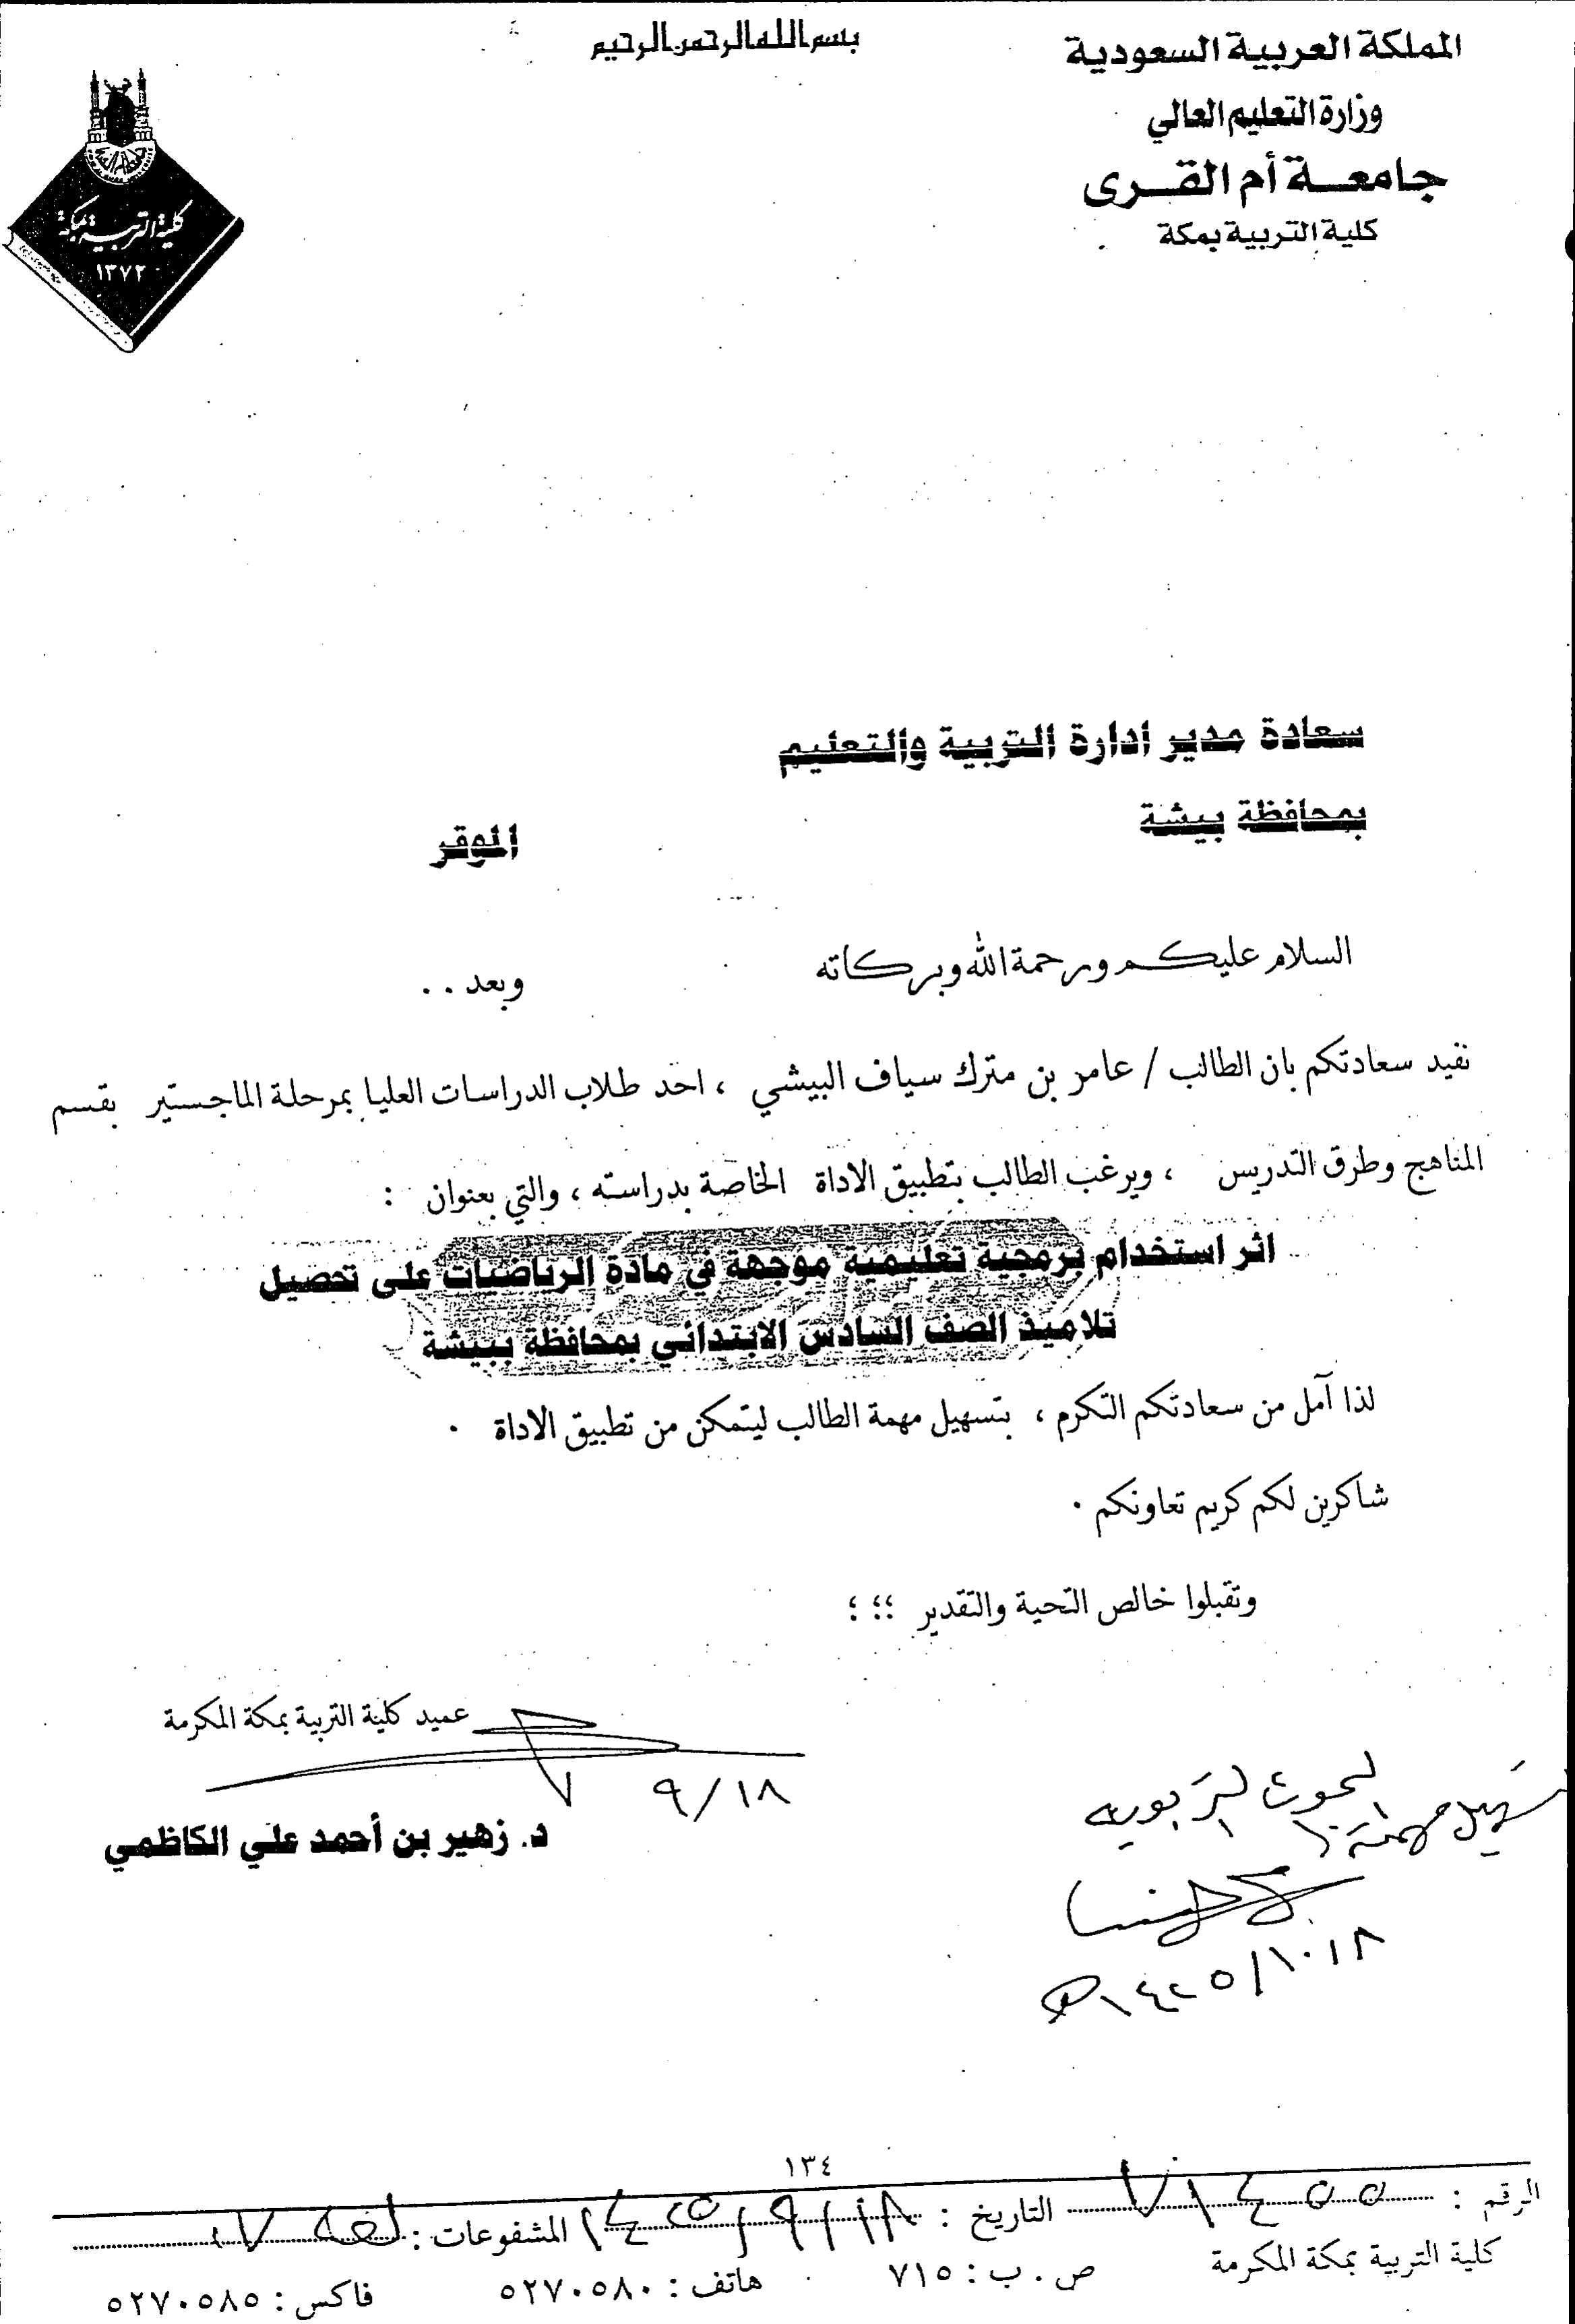 بسم الله الرحمن الرحيم
المملكة العربية السعودية
وزارة التعليم العالي
جامعة أم القرى
كلية التربية بمكة
كلية التربية بمكة
١٣٧٢
سعادة مدير ادارة التربية والتعليم
بمحافظة بيشة
الموقر
السلام عليكم ورحمة الله وبركاته
وبعد . .
نفيد سعادتكم بان الطالب / عامر بن مترك سياف البيشي ، احد طلاب الدراسات العليا بمرحلة الماجستير بقسم
المناهج وطرق التدريس ، ويرغب الطالب بتطبيق الاداة الخاصة بدراسته ، والتي بعنوان :
اثر استخدام برمجية تعليمية موجهة في مادة الرياضيات على تحصيل
تلاميذ الصف السادس الابتدائي بمحافظة ببيشة
لذا آمل من سعادتكم التكرم ، بتسهيل مهمة الطالب ليتمكن من تطبيق الاداة .
شاكرين لكم كريم تعاونكم .
وتقبلوا خالص التحية والتقدير ؛؛ ؛
عميد كلية التربية بمكة المكرمة
٩/١٨
د. زهير بن أحمد علي الكاظمي
البحوث التربوية
تسهيل مهمته
١٤٢٥/١٠/٨ هـ
١٣٤
الرقم : التاريخ : ١٤٢٥/٩/١٨ المشفوعات :
كلية التربية بمكة المكرمة ص . ب : ٧١٥ هاتف : ٥٢٧٠٥٨٠ فاكس : ٥٢٧٠٥٨٥